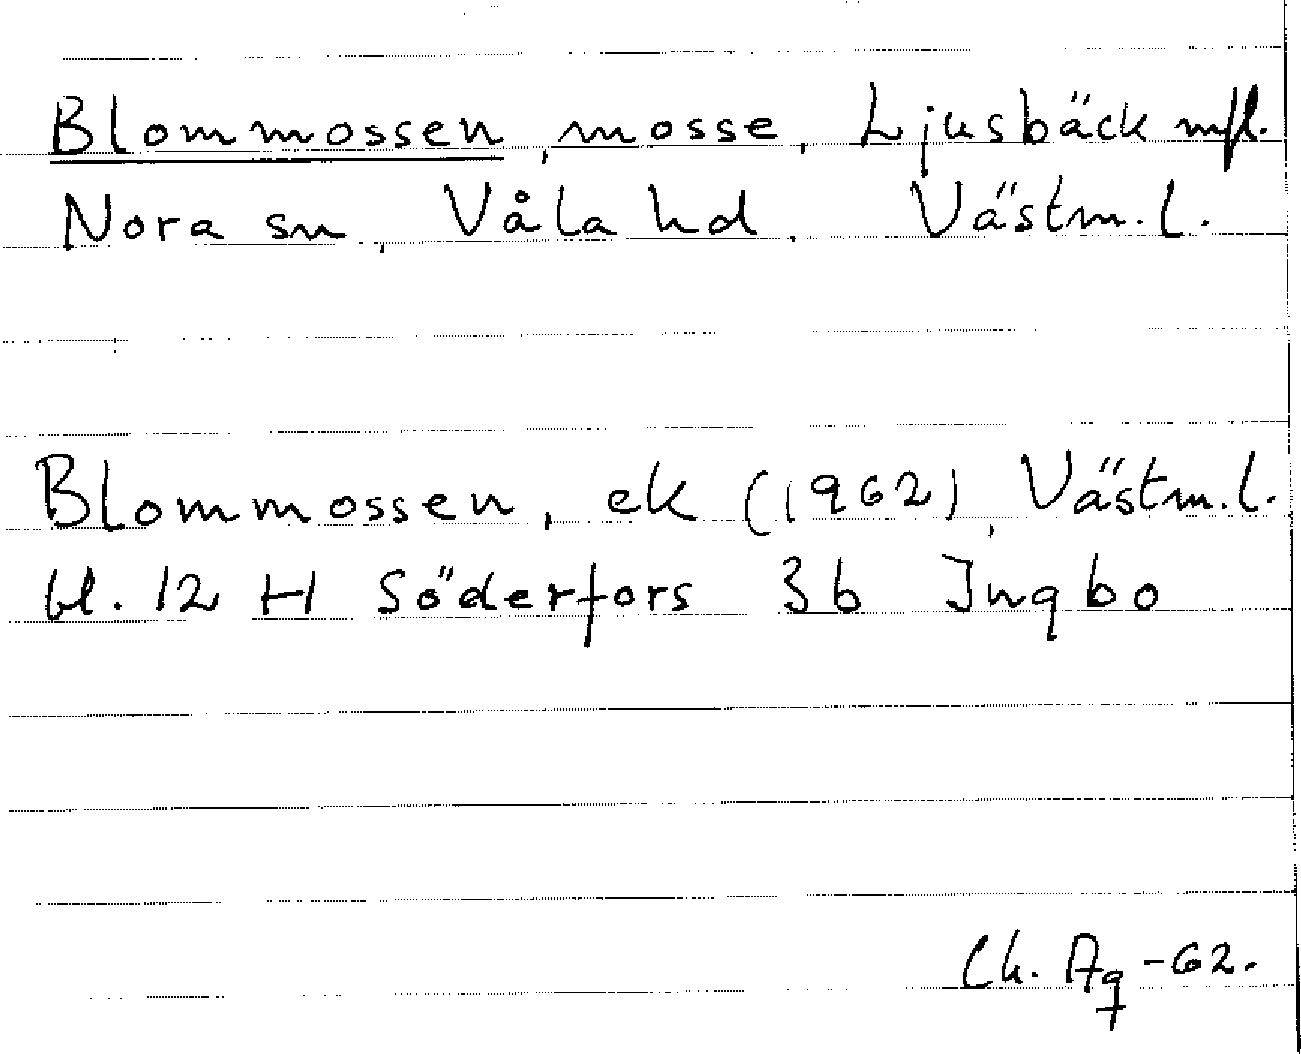 Blommossen, mosse, Ljusbäck mfl.
Nora sn, Våla hd, Västm.l.
Blommossen, ek (1962), Västm.l.
bl. 12 H Söderfors 3b Ingbo
Ch. Ag -62.